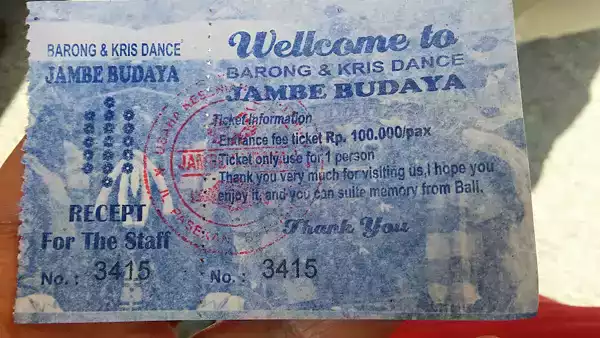 BARONG & KRIS DANCE
JAMBE BUDAYA
RECEPT
For The Staff
No.: 3415
Wellcome to
BARONG & KRIS DANCE
JAMBE BUDAYA
Ticket Information
- Entrance fee ticket Rp. 100.000/pax
- Ticket only use for 1 person
- Thank you very much for visiting us,I hope you
enjoy it, and you can suite memory from Bali.
Thank You
No.: 3415
USAHA KESENIAN